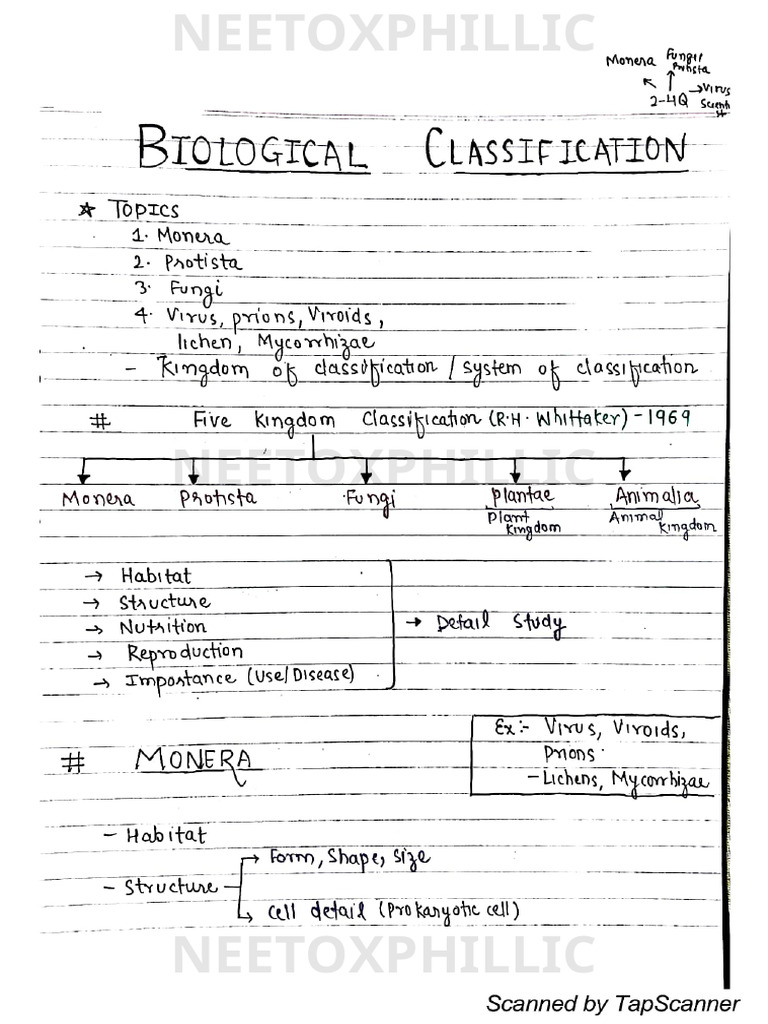 NEETOXPHILLIC
Monera Fungi Protista
2-4Q → Virus
BIOLOGICAL CLASSIFICATION
☆ TOPICS
1. Monera
2. Protista
3. Fungi
4. Virus, prions, Viroids,
lichen, Mycorrhizae
- Kingdom of classification / system of classification
# Five Kingdom Classification (R.H. Whittaker) - 1969
NEETOXPHILLIC
Monera Protista Fungi Plantae Animalia
Plant Kingdom Animal Kingdom
→ Habitat
→ Structure
→ Nutrition → Detail Study
→ Reproduction
→ Importance (Use/Disease)
Ex:- Virus, Viroids,
Prions
- Lichens, Mycorrhizae
# MONERA
- Habitat
→ Form, Shape, Size
- Structure
→ Cell detail (Prokaryotic cell)
NEETOXPHILLIC
Scanned by TapScanner